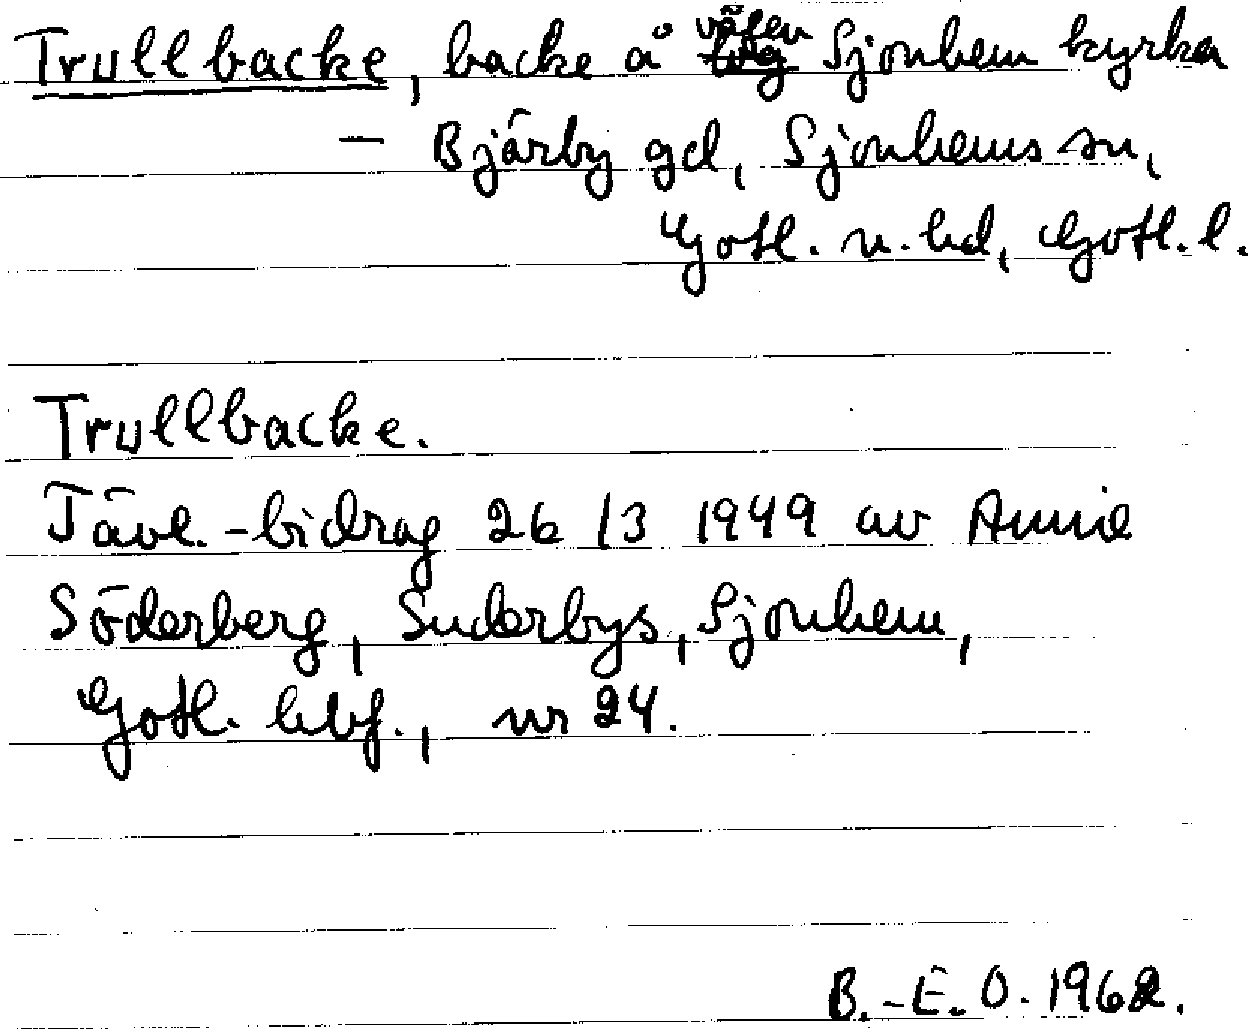 Trullbacke, backe å vägen Sjonhem kyrka
– Bjärby gd, Sjonhems sn,
Gotl. n. hd, Gotl. l.
Trullbacke.
Tävl.-bidrag 26/3 1949 av Annie
Söderberg, Suderbys, Sjonhem,
Gotl. hbf., nr 24.
B.-E. O. 1962.